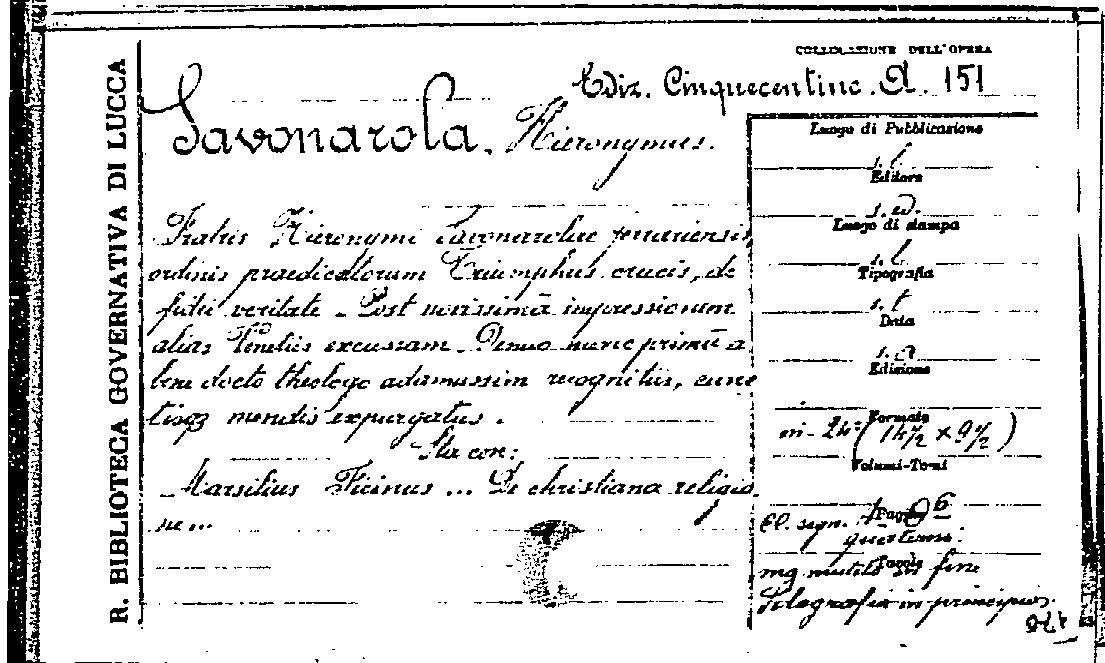 R. BIBLIOTECA GOVERNATIVA DI LUCCA
COLLOCAZIONE DELL'OPERA
Ediz. Cinquecentine. A. 151
Savonarola. Hieronymus.
Fratris Hieronymi Savonarolae ferrariensis
ordinis praedicatorum Triumphus crucis, de
fidei veritate - Post novissimā impressionem
alias Venetiis excussam - Denuo nunc primū a
bene docto theologo adamussim recognitus, cunc
tisqz mendis expurgatus.
Sta con:
Marsilius Ficinus ... De christiana religio
ne ...
Luogo di Pubblicazione
s. l
Editore
s. ed.
Luogo di stampa
s. l
Tipografia
s. t
Data
s. a
Edizione
Formato
in-24º (14½ × 9½)
Volumi-Tomi
Pagine
Cl. sign.
quaterni.
Tavole
mg mutilo in fine
Silografia in principio.